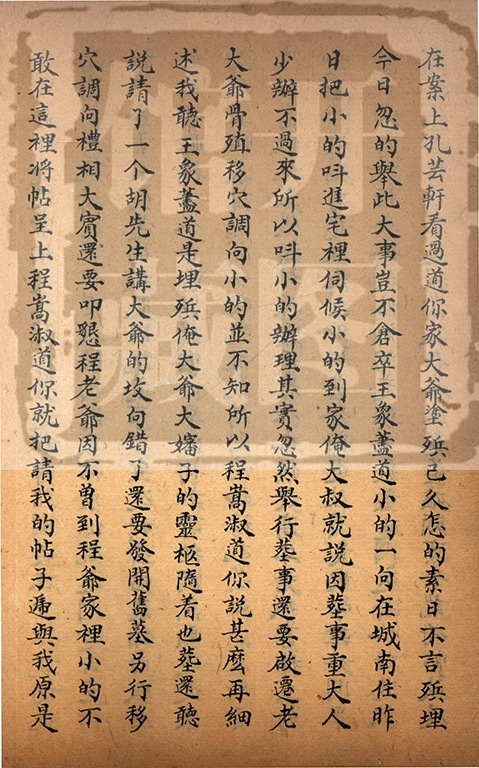 在案上孔芸軒看過道你家大爺塗殯已久怎的素日不言殯埋
今日忽的舉此大事豈不倉卒王象藎道小的一向在城南住昨
日把小的呌進宅裡伺候小的到家俺大叔就説因塟事重大人
少辦不過來所以呌小的辦理其實忽然舉行塟事還要啟遷老
大爺骨殖移穴調向小的並不知所以程嵩淑道你說甚麽再細
述我聽王象藎道是埋殯俺大爺大嬸子的靈柩隨着也塟還聽
説請了一个胡先生講大爺的坟向錯了還要發開舊墓另行移
穴調向禮相大賓還要叩懇程老爺因不曾到程爺家裡小的不
敢在這裡将帖呈上程嵩淑道你就把請我的帖子逓與我原是